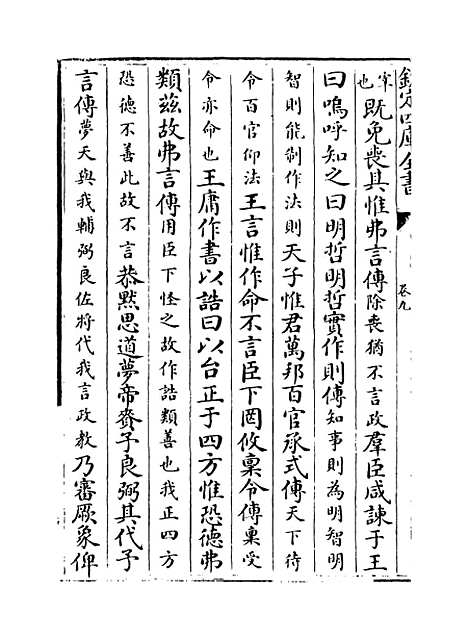 欽定四庫全書 卷九
宰也既免喪其惟弗言傳除喪猶不言政羣臣咸諫于王
曰嗚呼知之曰明哲明哲實作則傳知事則為明智明
智則能制作法則天子惟君萬邦百官承式傳天下待
令百官仰法王言惟作命不言臣下罔攸稟令傳稟受
令亦命也王庸作書以誥曰以台正于四方惟恐德弗
類茲故弗言傳用臣下怪之故作誥類善也我正四方
恐德不善此故不言恭默思道夢帝賚予良弼其代予
言傳夢天與我輔弼良佐將代我言政教乃審厥象俾